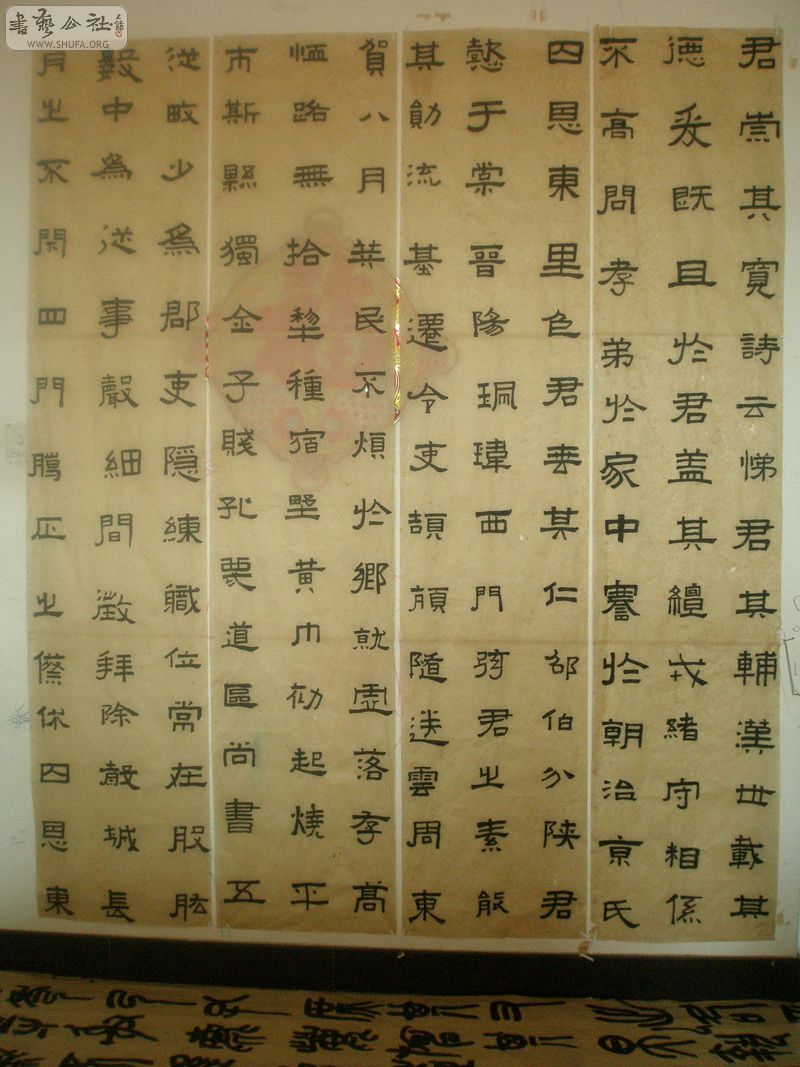 書藝公社
WWW.SHUFA.ORG
君崇其寬詩云悌君其輔漢世載其
德爰既且於君蓋其繵戎緒守相係
不高問孝弟於家中謇於朝治京氏
四思東里色君垂其仁邵伯分陝君
懿于棠晉陽珮瑋西門弦君之素能
其勛流基遷令吏頡頏隨送雲周東
賀八月筭民不煩於鄉就虛落存高
恤路無拾犁種宿野黃巾初起燒平
市斯縣獨金子賤孔蔑道區尚書五
從畋少為郡吏隱練職位常在股肱
數中為從事聲細聞徵拜除穀城長
月之不閑四門騰正之傺休囚思東